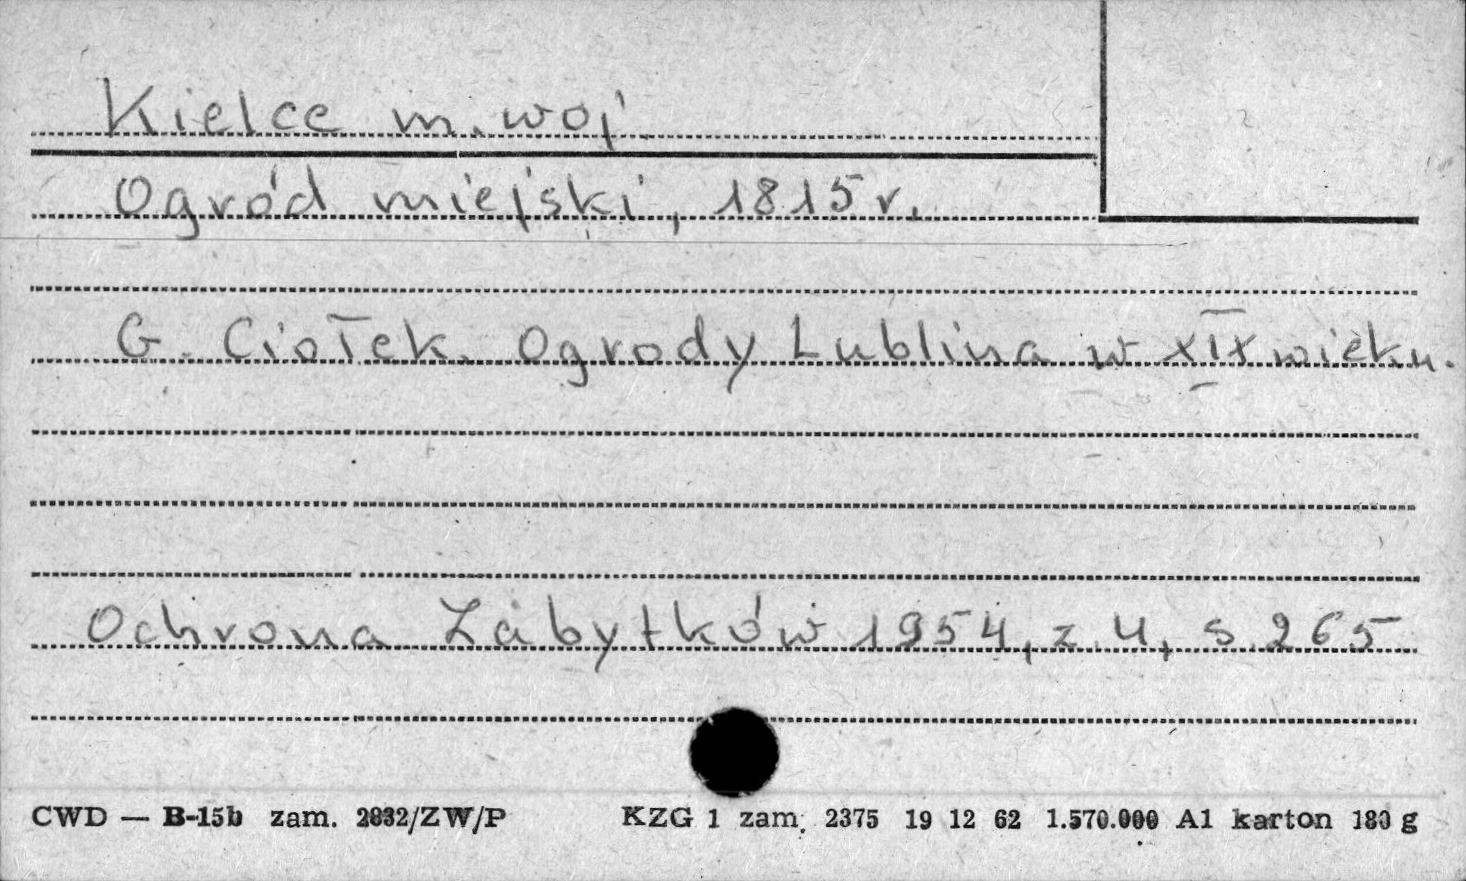 Kielce m. woj.
Ogród miejski, 1815 r.
G. Ciołek. Ogrody Lublina w XIX wieku.
Ochrona Zabytków 1954, z. 4, s. 265
CWD — B-15b zam. 2832/ZW/P KZG 1 zam. 2375 19 12 62 1.570.000 A1 karton 180 g